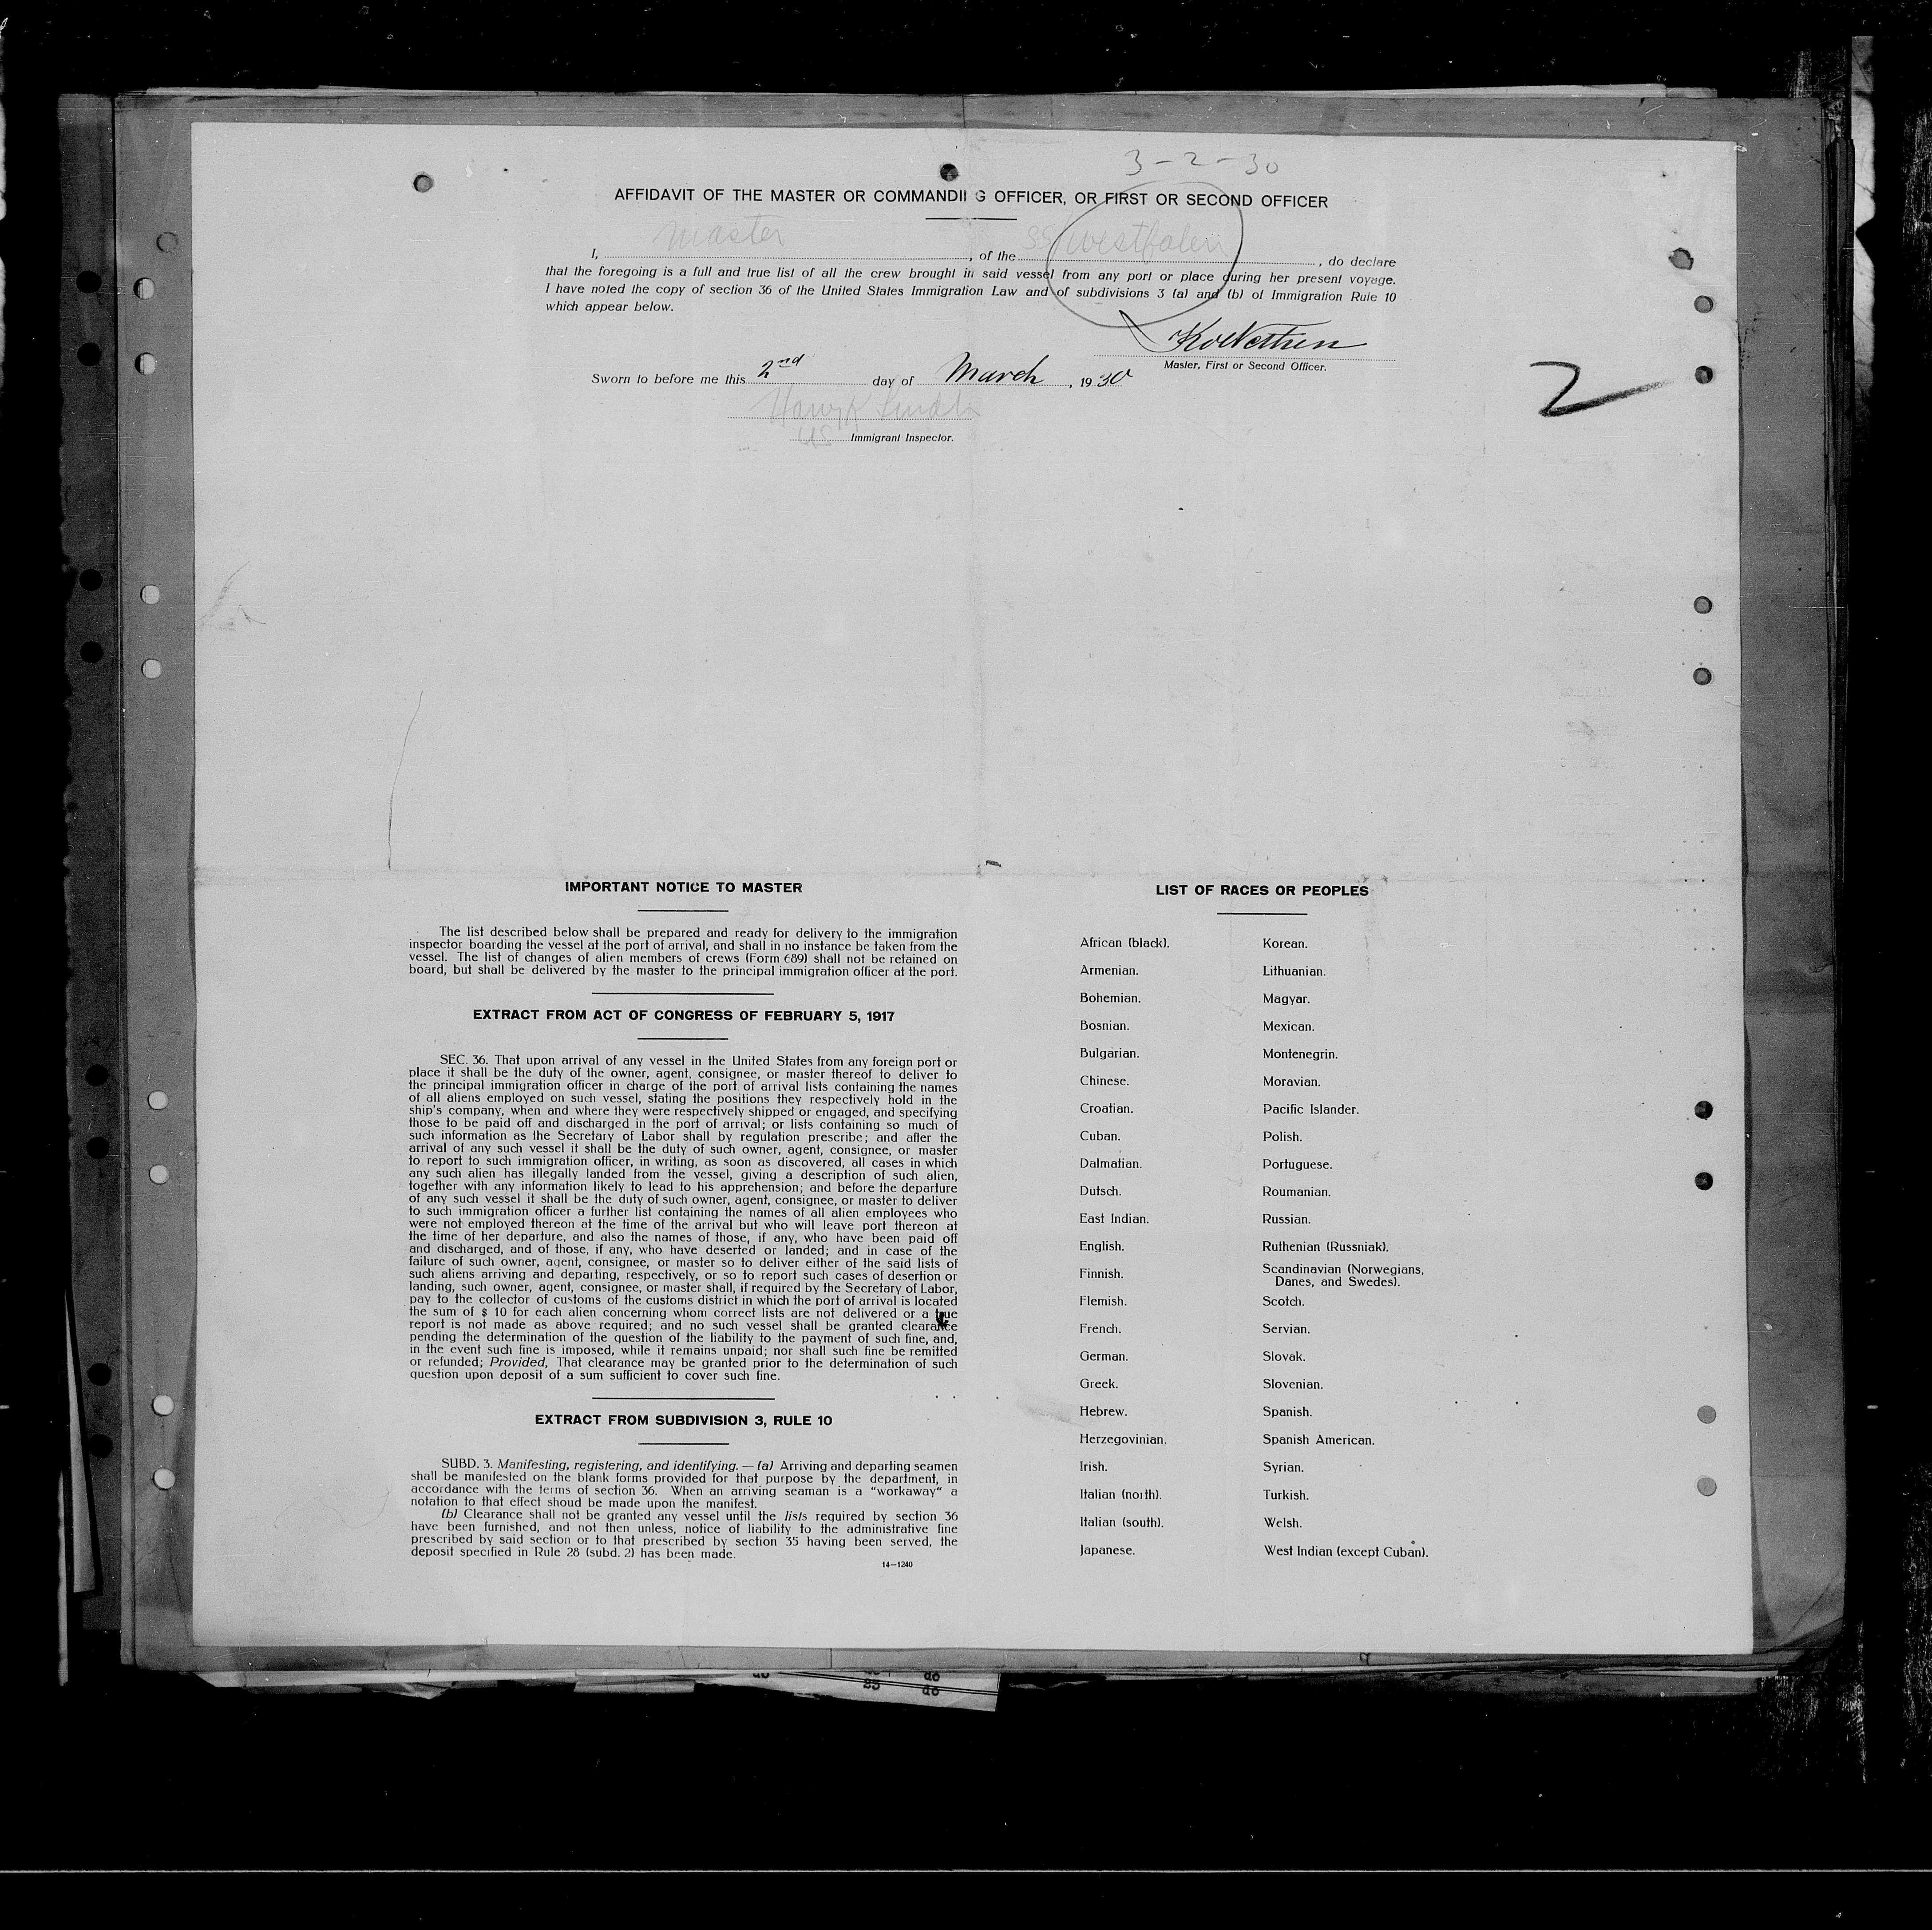 3-2-30
AFFIDAVIT OF THE MASTER OR COMMANDI G OFFICER, OR FIRST OR SECOND OFFICER
I, Master, of the SS Westfalen, do declare
that the foregoing is a full and true list of all the crew brought in said vessel from any port or place during her present voyage.
I have noted the copy of section 36 of the United States Immigration Law and of subdivisions 3 (a) and (b) of Immigration Rule 10
which appear below.
Master, First or Second Officer.
Sworn to before me this 2nd day of March, 1930
2
US Immigrant Inspector.
IMPORTANT NOTICE TO MASTER
The list described below shall be prepared and ready for delivery to the immigration
inspector boarding the vessel at the port of arrival, and shall in no instance be taken from the
vessel. The list of changes of alien members of crews (Form 689) shall not be retained on
board, but shall be delivered by the master to the principal immigration officer at the port.
EXTRACT FROM ACT OF CONGRESS OF FEBRUARY 5, 1917
SEC. 36. That upon arrival of any vessel in the United States from any foreign port or
place it shall be the duty of the owner, agent, consignee, or master thereof to deliver to
the principal immigration officer in charge of the port of arrival lists containing the names
of all aliens employed on such vessel, stating the positions they respectively hold in the
ship's company, when and where they were respectively shipped or engaged, and specifying
those to be paid off and discharged in the port of arrival; or lists containing so much of
such information as the Secretary of Labor shall by regulation prescribe; and after the
arrival of any such vessel it shall be the duty of such owner, agent, consignee, or master
to report to such immigration officer, in writing, as soon as discovered, all cases in which
any such alien has illegally landed from the vessel, giving a description of such alien,
together with any information likely to lead to his apprehension; and before the departure
of any such vessel it shall be the duty of such owner, agent, consignee, or master to deliver
to such immigration officer a further list containing the names of all alien employees who
were not employed thereon at the time of the arrival but who will leave port thereon at
the time of her departure, and also the names of those, if any, who have been paid off
and discharged, and of those, if any, who have deserted or landed; and in case of the
failure of such owner, agent, consignee, or master so to deliver either of the said lists of
such aliens arriving and departing, respectively, or so to report such cases of desertion or
landing, such owner, agent, consignee, or master shall, if required by the Secretary of Labor,
pay to the collector of customs of the customs district in which the port of arrival is located
the sum of $ 10 for each alien concerning whom correct lists are not delivered or a true
report is not made as above required; and no such vessel shall be granted clearance
pending the determination of the question of the liability to the payment of such fine, and,
in the event such fine is imposed, while it remains unpaid; nor shall such fine be remitted
or refunded; Provided, That clearance may be granted prior to the determination of such
question upon deposit of a sum sufficient to cover such fine.
EXTRACT FROM SUBDIVISION 3, RULE 10
SUBD. 3. Manifesting, registering, and identifying. — (a) Arriving and departing seamen
shall be manifested on the blank forms provided for that purpose by the department, in
accordance with the terms of section 36. When an arriving seaman is a "workaway" a
notation to that effect shoud be made upon the manifest.
(b) Clearance shall not be granted any vessel until the lists required by section 36
have been furnished, and not then unless, notice of liability to the administrative fine
prescribed by said section or to that prescribed by section 35 having been served, the
deposit specified in Rule 28 (subd. 2) has been made.
14—1240
LIST OF RACES OR PEOPLES
African (black).
Armenian.
Bohemian.
Bosnian.
Bulgarian.
Chinese.
Croatian.
Cuban.
Dalmatian.
Dutsch.
East Indian.
English.
Finnish.
Flemish.
French.
German.
Greek.
Hebrew.
Herzegovinian.
Irish.
Italian (north).
Italian (south).
Japanese.
Korean.
Lithuanian.
Magyar.
Mexican.
Montenegrin.
Moravian.
Pacific Islander.
Polish.
Portuguese.
Roumanian.
Russian.
Ruthenian (Russniak).
Scandinavian (Norwegians,
Danes, and Swedes).
Scotch.
Servian.
Slovak.
Slovenian.
Spanish.
Spanish American.
Syrian.
Turkish.
Welsh.
West Indian (except Cuban).
do
23 do